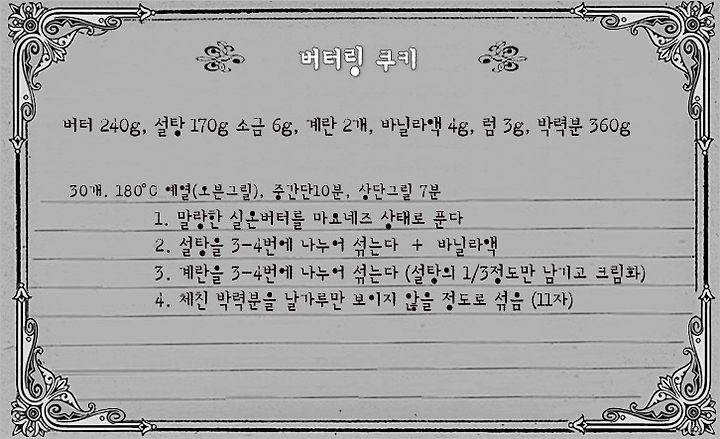 버터링 쿠키
버터 240g, 설탕 170g 소금 6g, 계란 2개, 바닐라액 4g, 럼 3g, 박력분 360g
30개. 180°C 예열(오븐그릴), 중간단10분, 상단그릴 7분
1. 말랑한 실온버터를 마요네즈 상태로 푼다
2. 설탕을 3-4번에 나누어 섞는다 + 바닐라액
3. 계란을 3-4번에 나누어 섞는다 (설탕의 1/3정도만 남기고 크림화)
4. 체친 박력분을 날가루만 보이지 않을 정도로 섞음 (11자)